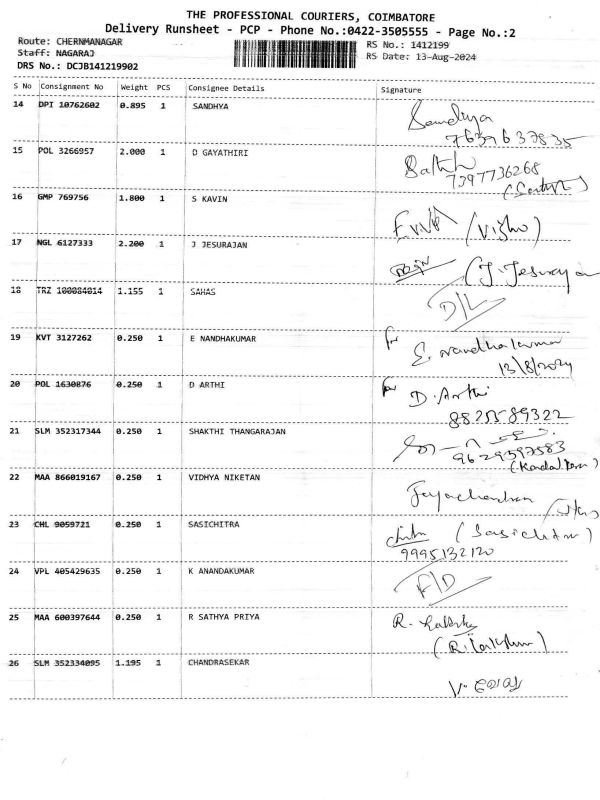 THE PROFESSIONAL COURIERS, COIMBATORE
Delivery Runsheet - PCP - Phone No.:0422-3505555 - Page No.:2
Route: CHERNMANAGAR
RS No.: 1412199
Staff: NAGARAJ
RS Date: 13-Aug-2024
DRS No.: DCJB141219902
S No Consignment No Weight PCS Consignee Details Signature
14 DPI 10762602 0.895 1 SANDHYA Sandhya
7639637835
15 POL 3266957 2.000 1 D GAYATHIRI
7397736268
16 GMP 769756 1.800 1 S KAVIN (Vishu)
17 NGL 6127333 2.200 1 J JESURAJAN (J. Jesurajan
18 TRZ 100084014 1.155 1 SAHAS D/L
19 KVT 3127262 0.250 1 E NANDHAKUMAR for E. Nandhakumar
13/8/2024
20 POL 1630876 0.250 1 D ARTHI for D. Arthi
8825589322
21 SLM 352317344 0.250 1 SHAKTHI THANGARAJAN
9629597583
22 MAA 866019167 0.250 1 VIDHYA NIKETAN Jayachandran
23 CHL 9059721 0.250 1 SASICHITRA (Sasichitra)
9995132120
24 VPL 405429635 0.250 1 K ANANDAKUMAR F/D
25 MAA 600397644 0.250 1 R SATHYA PRIYA R.
26 SLM 352334095 1.195 1 CHANDRASEKAR